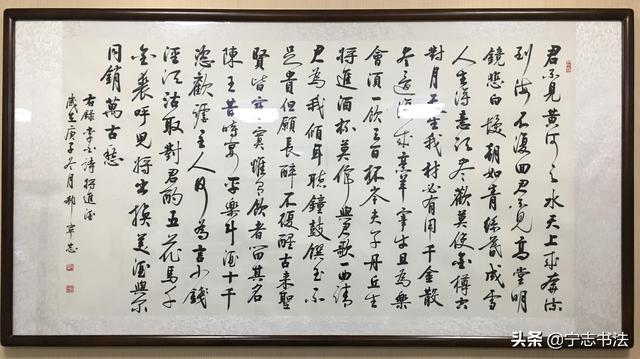 君不見黃河之水天上來奔流
到海不復回君不見高堂明
鏡悲白髮朝如青絲暮成雪
人生得意須盡歡莫使金樽空
對月天生我材必有用千金散
盡還復來烹羊宰牛且為樂
會須一飲三百杯岑夫子丹丘生
將進酒杯莫停與君歌一曲請
君為我傾耳聽鐘鼓饌玉不
足貴但願長醉不復醒古來聖
賢皆寂寞惟有飲者留其名
陳王昔時宴平樂斗酒十千
恣歡謔主人何為言少錢
徑須沽取對君酌五花馬千
金裘呼兒將出換美酒與爾
同銷萬古愁
右錄李白詩將進酒
歲在庚子冬月寧志
头条@宁志书法